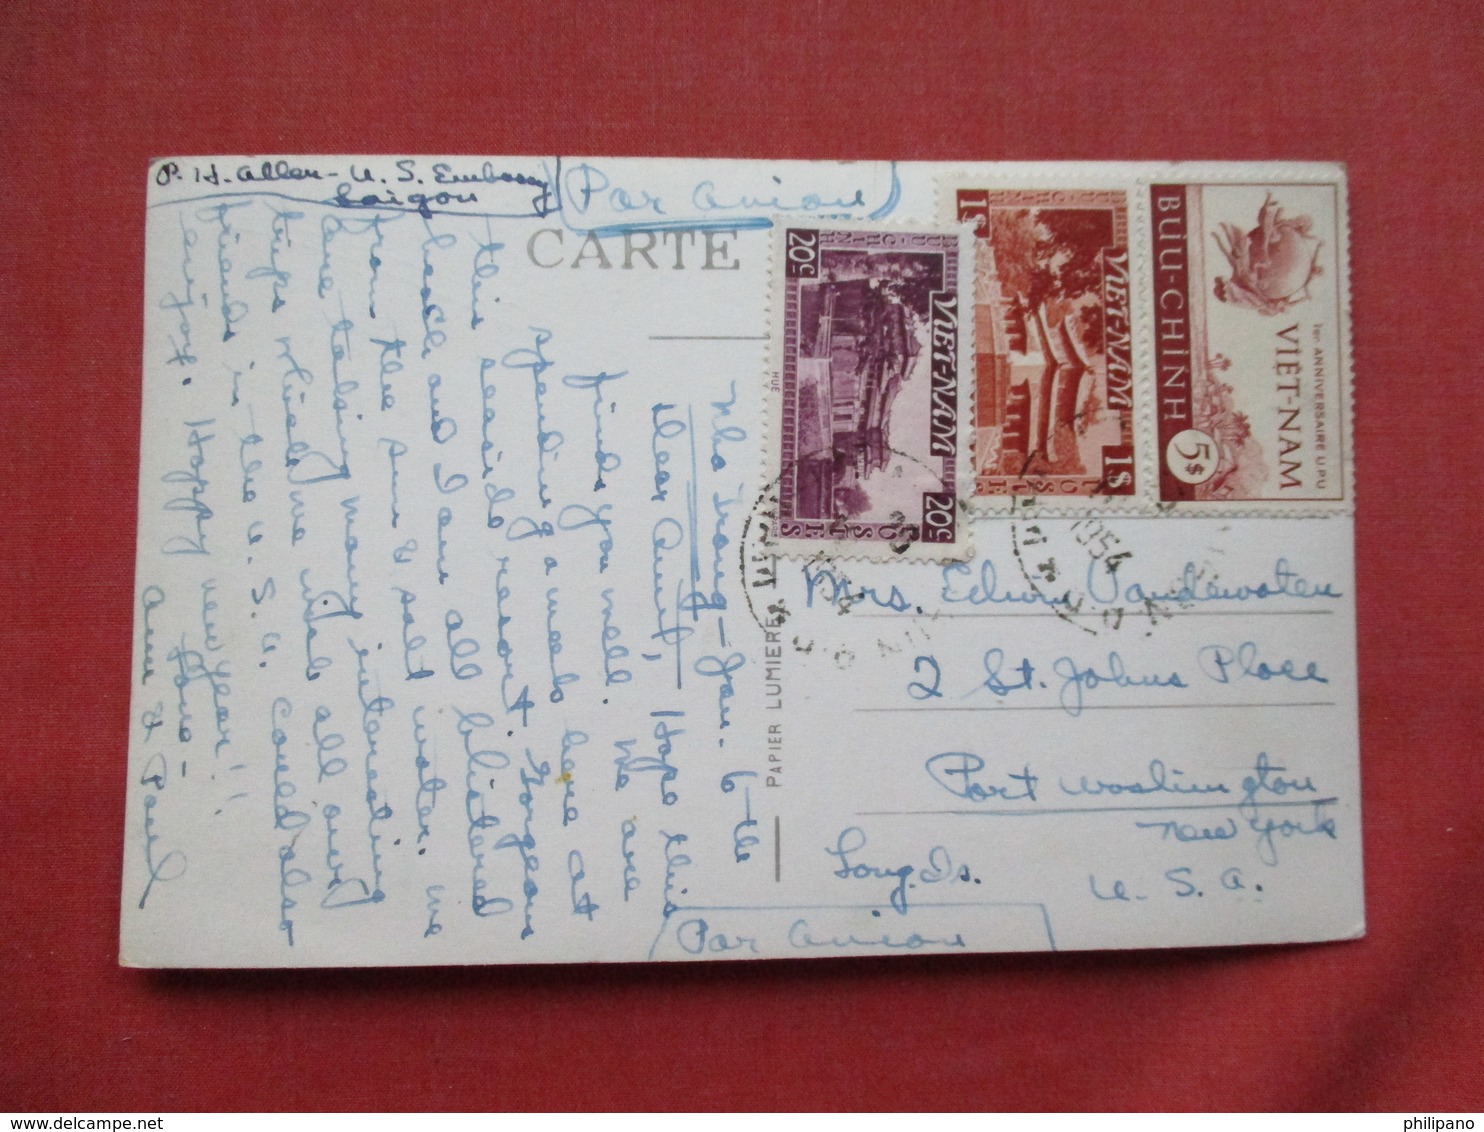 P. H. Allen - U. S. Embassy
Saigon
Par Avion
CARTE
Nha Trang - Jan. 6 - th
Dear Aunt, Hope this
finds you well. We are
spending a week here at
this seaside resort. Gorgeous
beach and I am all blistered
from the sun & salt water. We
are taking many interesting
trips which we wish all our
friends in the U. S. A. could also
enjoy. Happy New Year!!
Love -
Ann & Paul
PAPIER LUMIERE
20c
BUU-CHINH
VIET-NAM
HUE
POSTES
20c
1$
BUU-CHINH
VIET-NAM
POSTES
1$
BUU-CHÍNH
5$
VIET-NAM
1er ANNIVERSAIRE U.P.U
1954
1954
Mrs. Edwin Vandewater
2 St. Johns Place
Port Washington
New York
Long. Is.
U. S. A.
Par Avion
philipano
delcampe.net